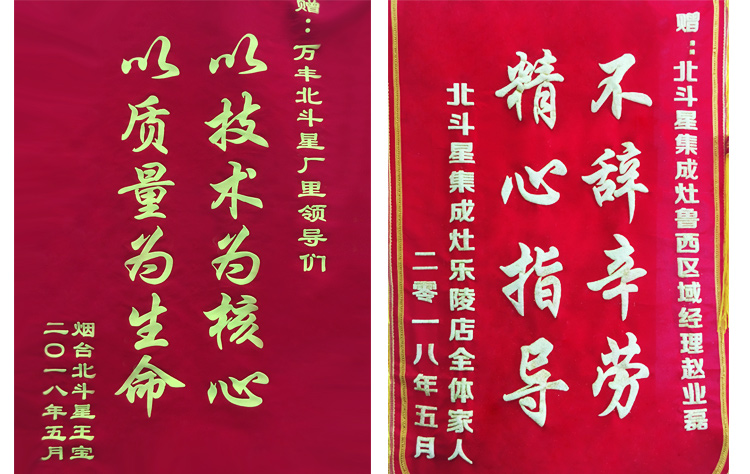 赠：万丰北斗星厂里领导们
以技术为核心
以质量为生命
烟台北斗星王宝
二〇一八年五月
赠：北斗星集成灶鲁西区域经理赵业磊
不辞辛劳
精心指导
北斗星集成灶乐陵店全体家人
二零一八年五月